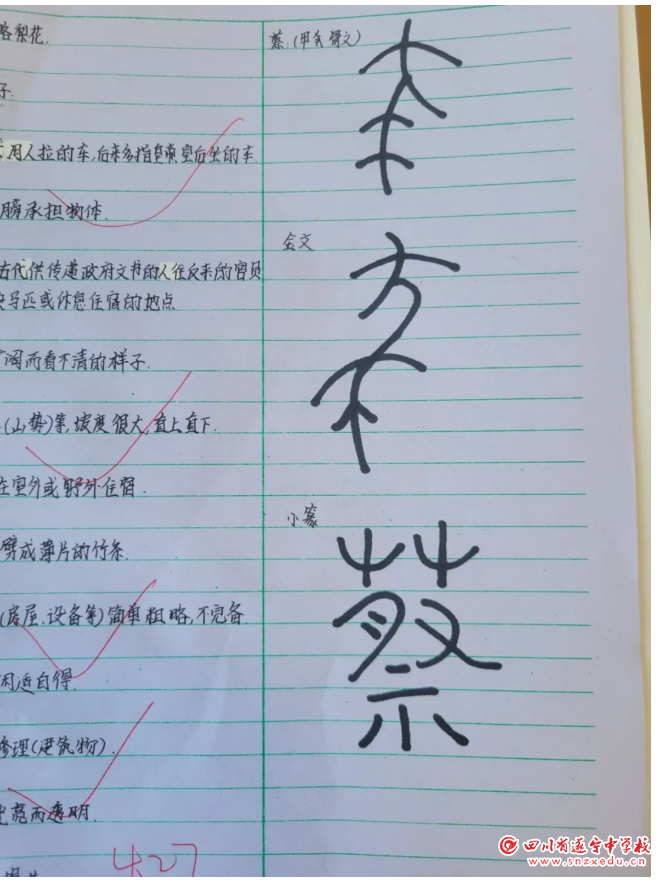 略梨花.
子.
用人拉的车,后来多指皇帝皇后坐的车.
用肩承担物体.
古代供传递政府文书的人往反来的官员
换马匹或休息住宿的地点
广阔而看不清的样子.
(山势)等,坡度很大,直上直下.
在室外或野外住宿.
劈成薄片的竹条.
(房屋、设备等)简单粗略,不完备
闲适自得.
修理(建筑物).
光亮而透明.
427
蔡:(甲关骨文)
金文
小篆
蔡
四川省遂宁中学校
www.snzxedu.cn